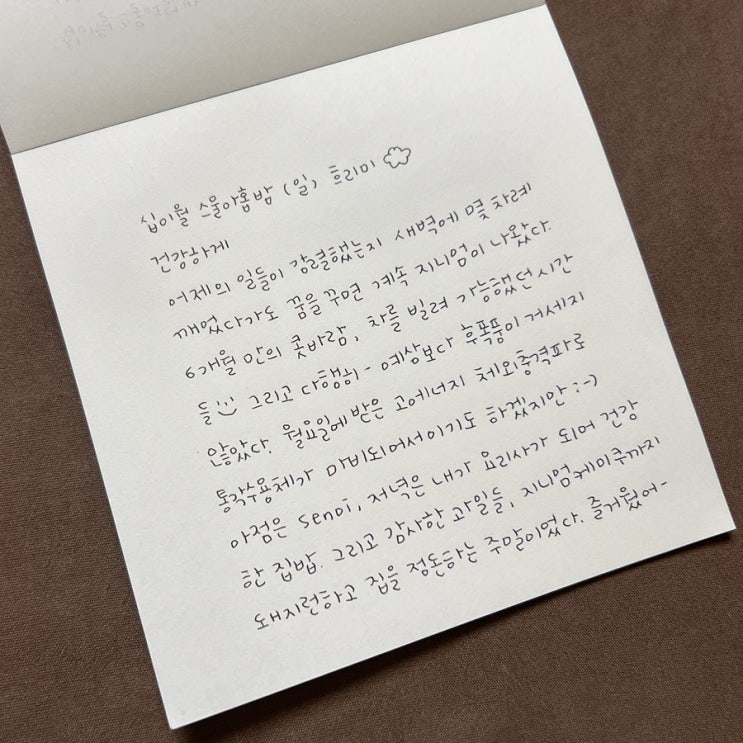 십이월 스물아홉밤 (일) 흐리미
건강하게
어제의 일들이 강렬했는지 새벽에 몇 차례
깨었다가도 꿈을 꾸면 계속 지니엄이 나왔다.
6개월 만의 콧바람, 차를 빌려 가능했던 시간
들 :) 그리고 다행히- 예상보다 후폭풍이 거세지
않았다. 월요일에 받은 고에너지 체외충격파로
통각수용체가 마비되어서이기도 하겠지만 :-)
아점은 sendi, 저녁은 내가 요리사가 되어 건강
한 집밥. 그리고 감사한 과일들, 지니엄케미쭈까지
돼지런하고 집을 정돈하는 주말이었다. 즐거웠어-